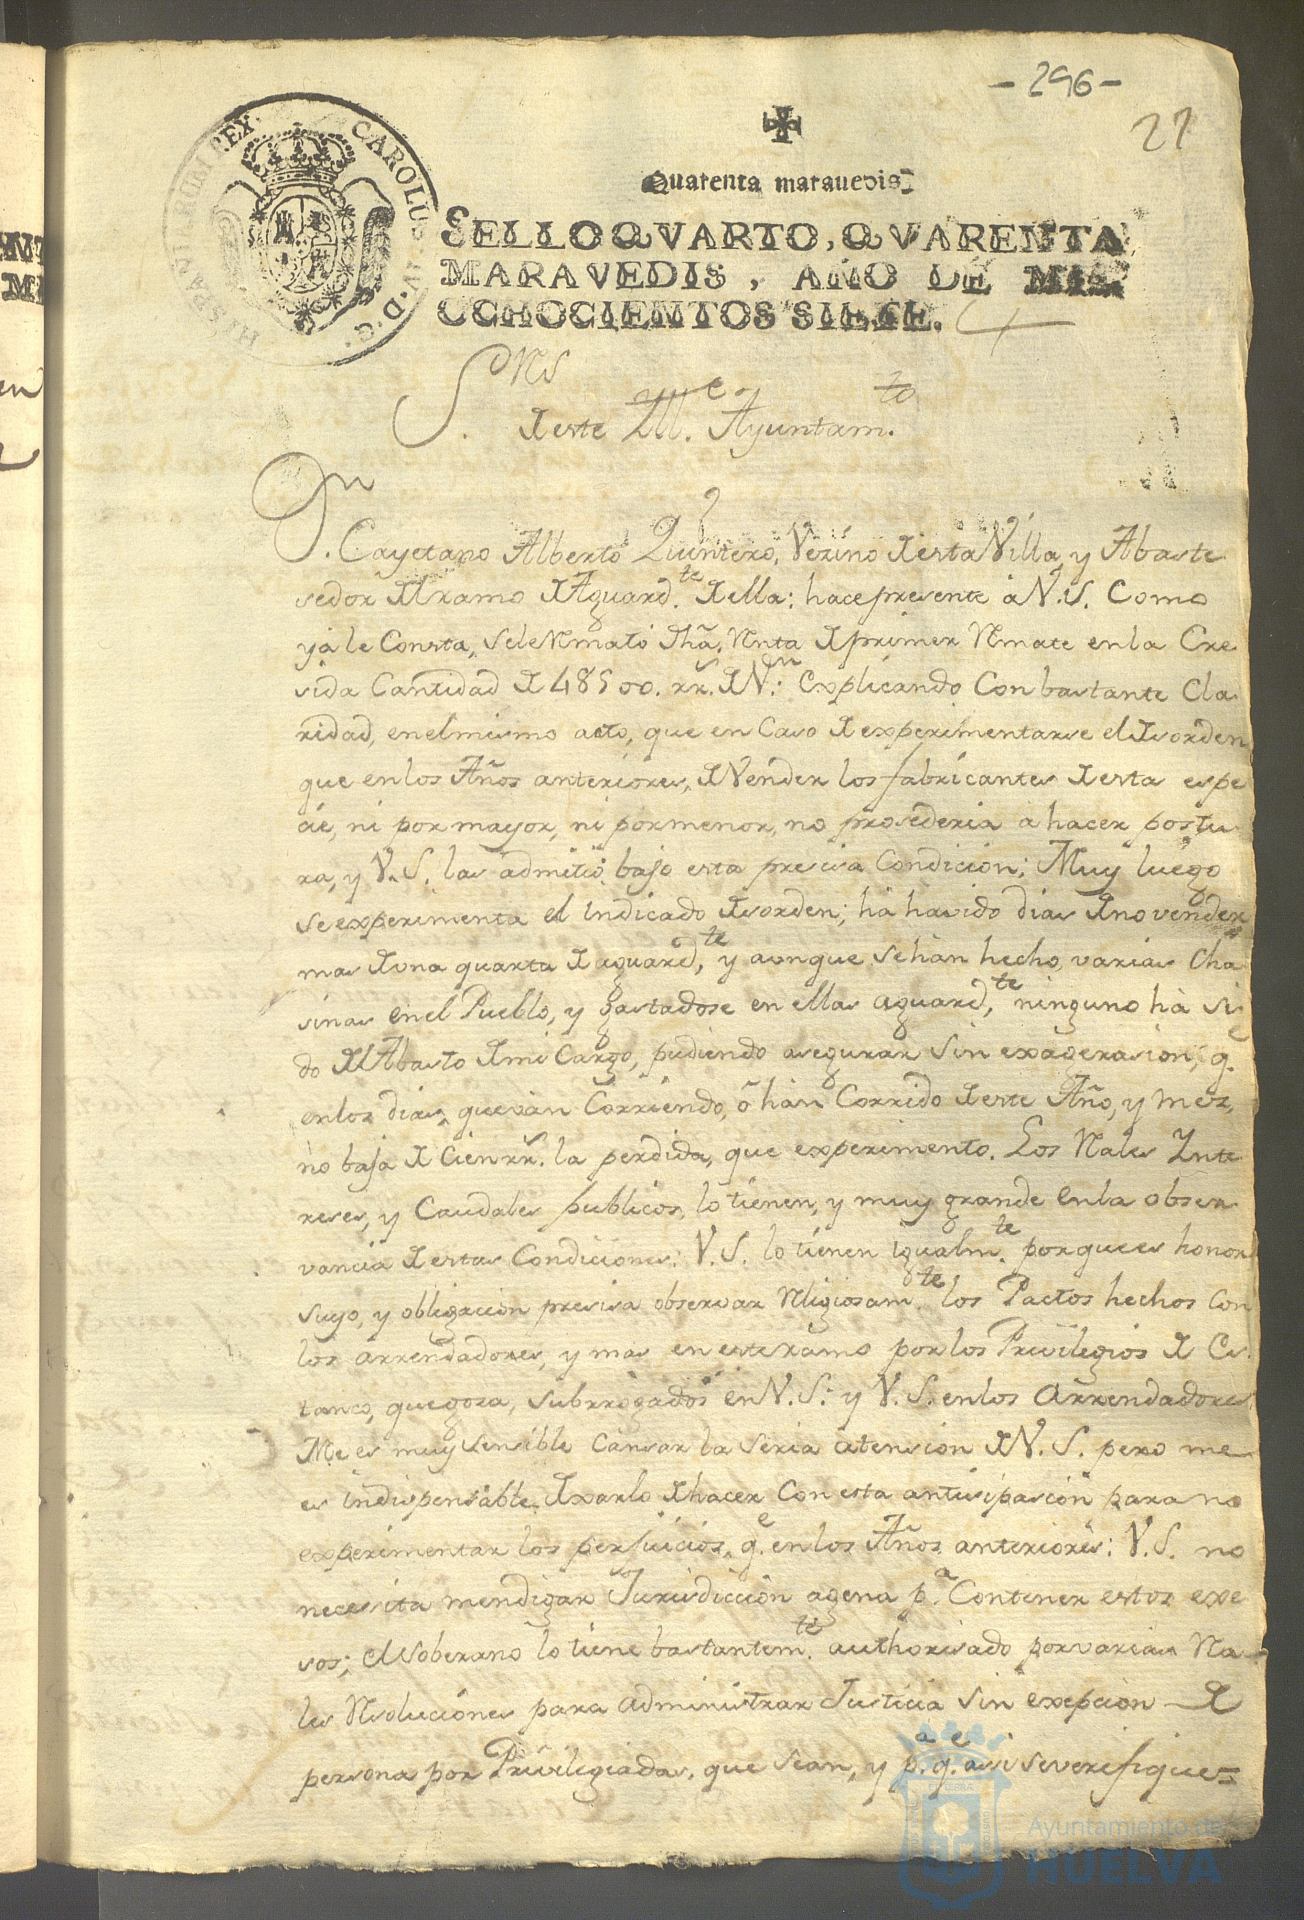 -296-
21
Quarenta maravedis.
SELLO QVARTO, QVARENTA
MARAVEDIS, AÑO DE MIL
OCHOCIENTOS SIETE.
CAROLUS IV. D. G. HISPANIAR. REX
S.res
De este Ill.e Ayuntam.to
D.n Cayetano Alberto Quintero, Vezino de esta Villa, y Abaste
sedor del ramo de Aguard.te de ella: hace presente à V.S. Como
ya le Consta, se le Rematò dha. Renta de primer Remate en la Cre
sida Cantidad de 48500. rr.s de V.n: explicando Con bastante Cla
ridad, en el mismo acto, que en Caso de experimentarse el desorden
que en los Años anteriores, de Vender los fabricantes de esta espe
cie, ni por mayor, ni por menor, no prosederia a hacer postu
ra, y V.S. las admitiò bajo esta presisa Condicion: Muy luego
se experimenta el indicado desorden; hà havido dias de no vender
mas de una quarta de aguard.te, y aunque se hàn hecho varias Cha
sinas en el Pueblo, y gastadose en ellas aguard.te, ninguno hà si
do del Abasto de mi Cargo, pudiendo asegurar sin exagerasion, q.e
en los dias, que vàn Corriendo, ò hàn Corrido de este Año, y mes,
no baja de Cien rr.s la perdida, que experimento. Los Rales Ynte
reses, y Caudales publicos, lo tienen, y muy grande en la obser
vancia de estas Condiciones: V.S. lo tienen igualm.te porque es honor
suyo, y obligacion presisa observar Religiosam.te los Pactos hechos Con
los arrendadores, y mas en este ramo por los Privilegios de Es
tanco, que goza, subrrogados en V.S. y V.S. en los Arrendadores.
Me es muy sensible Cansar la seria atension de V.S. pero me
es indispensable dexarlo de hacer Con esta antisipasion para no
experimentar los perjuicios, q.e en los Años anteriores: V.S. no
necesita mendigar Jurisdiccion agena p.a Contener estos exe
sos; el Soberano lo tiene bastantem.te authorisado por varias Rea
les Resoluciones para administrar Justicia sin exepcion de
persona por Privilegiadas, que sean, y p.a q.e asi se verifique=
Ayuntamiento de
HUELVA